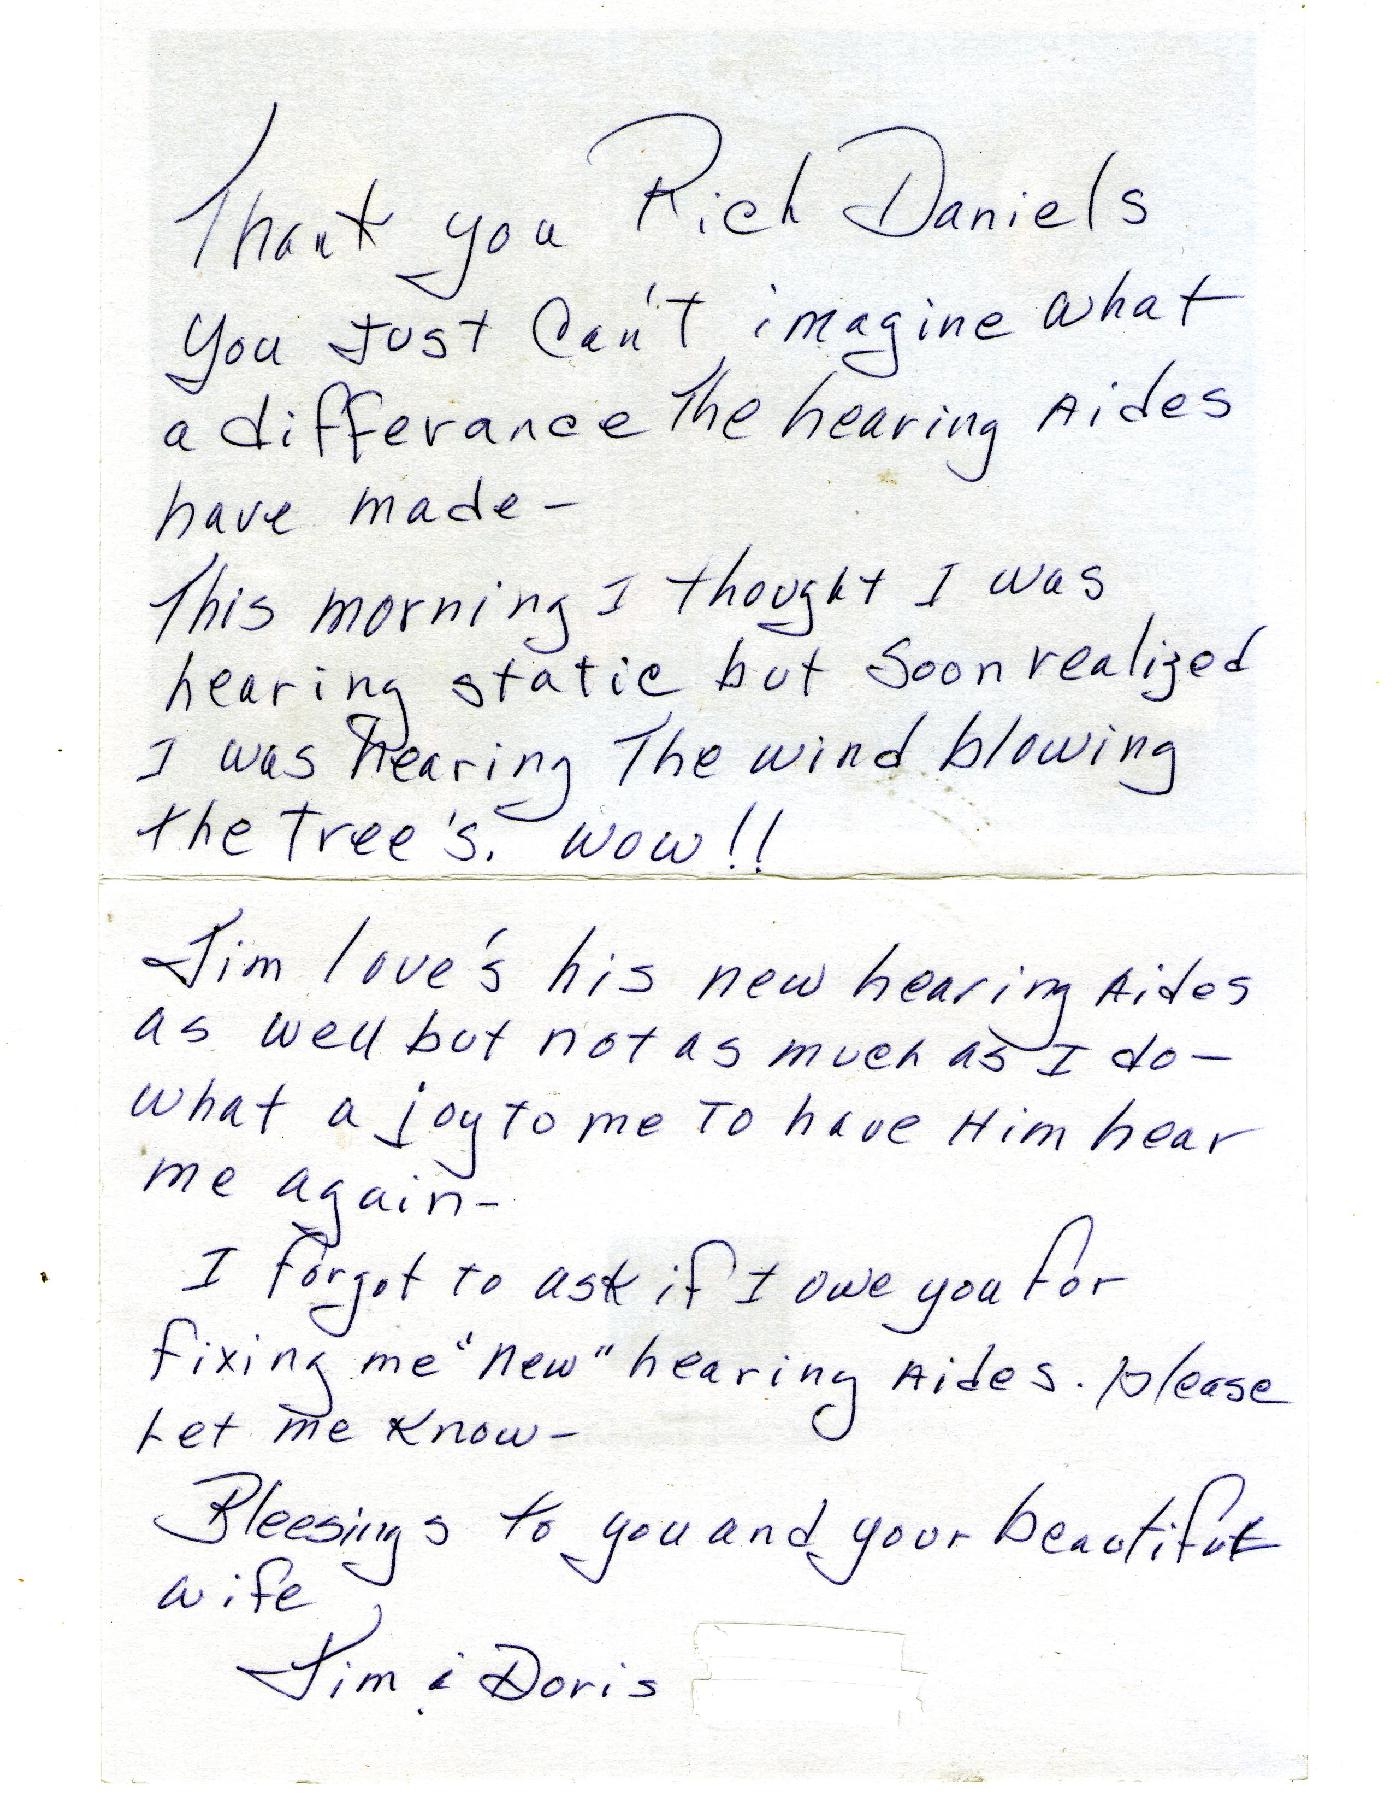 Thank you Rich Daniels
You Just Can't imagine what
a differance The hearing Aides
have made-
This morning I thought I was
hearing static but Soon realized
I was hearing The wind blowing
the Tree's. WOW!!
Jim love's his new hearing Aides
as well but not as much as I do-
what a joy to me To have Him hear
me again-
I forgot to ask if I owe you for
fixing me "new" hearing Aides. please
Let me know-
Bleesings to you and your beautiful
wife
Jim & Doris